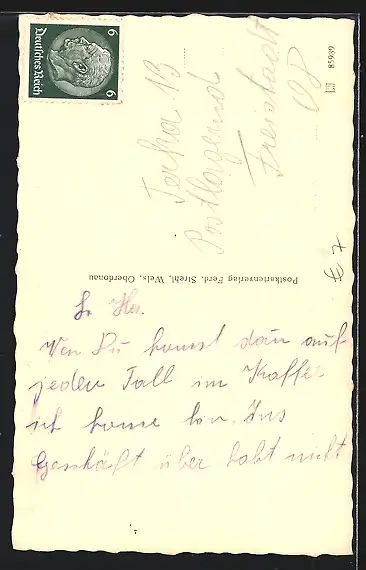 Deutsches Reich
6
6
85989
13
Postlagernd
Freistadt
OD
Postkartenverlag Ferd. Strehl, Wels, Oberdonau
€ 7
Wen Du komst dan auf
jeden Fall im Kaffee
ich kome hin. Ins
Geschäft über habt nicht